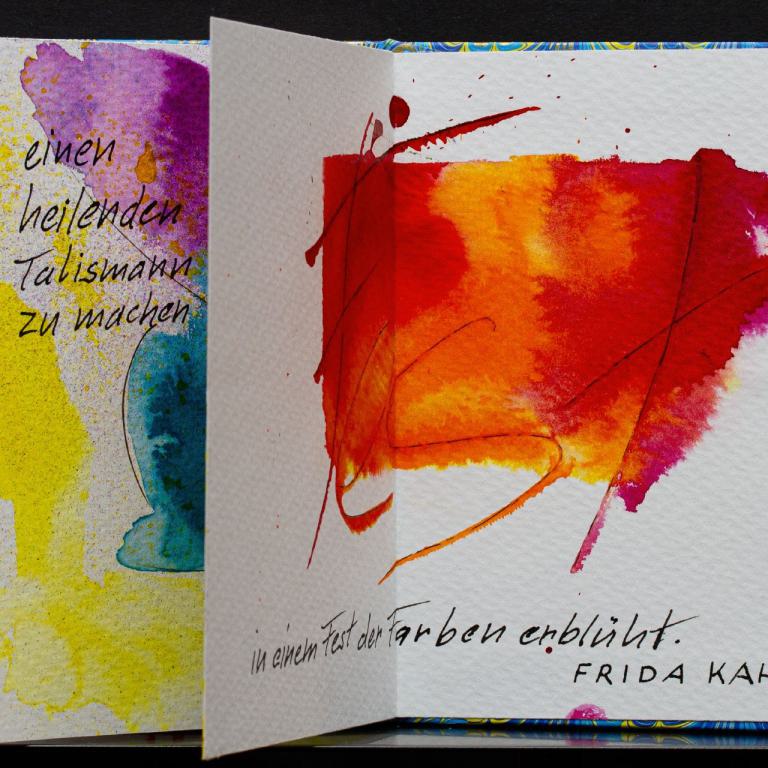 einen
heilenden
Talismann
zu machen
in einem Fest der Farben erblüht.
FRIDA KAH